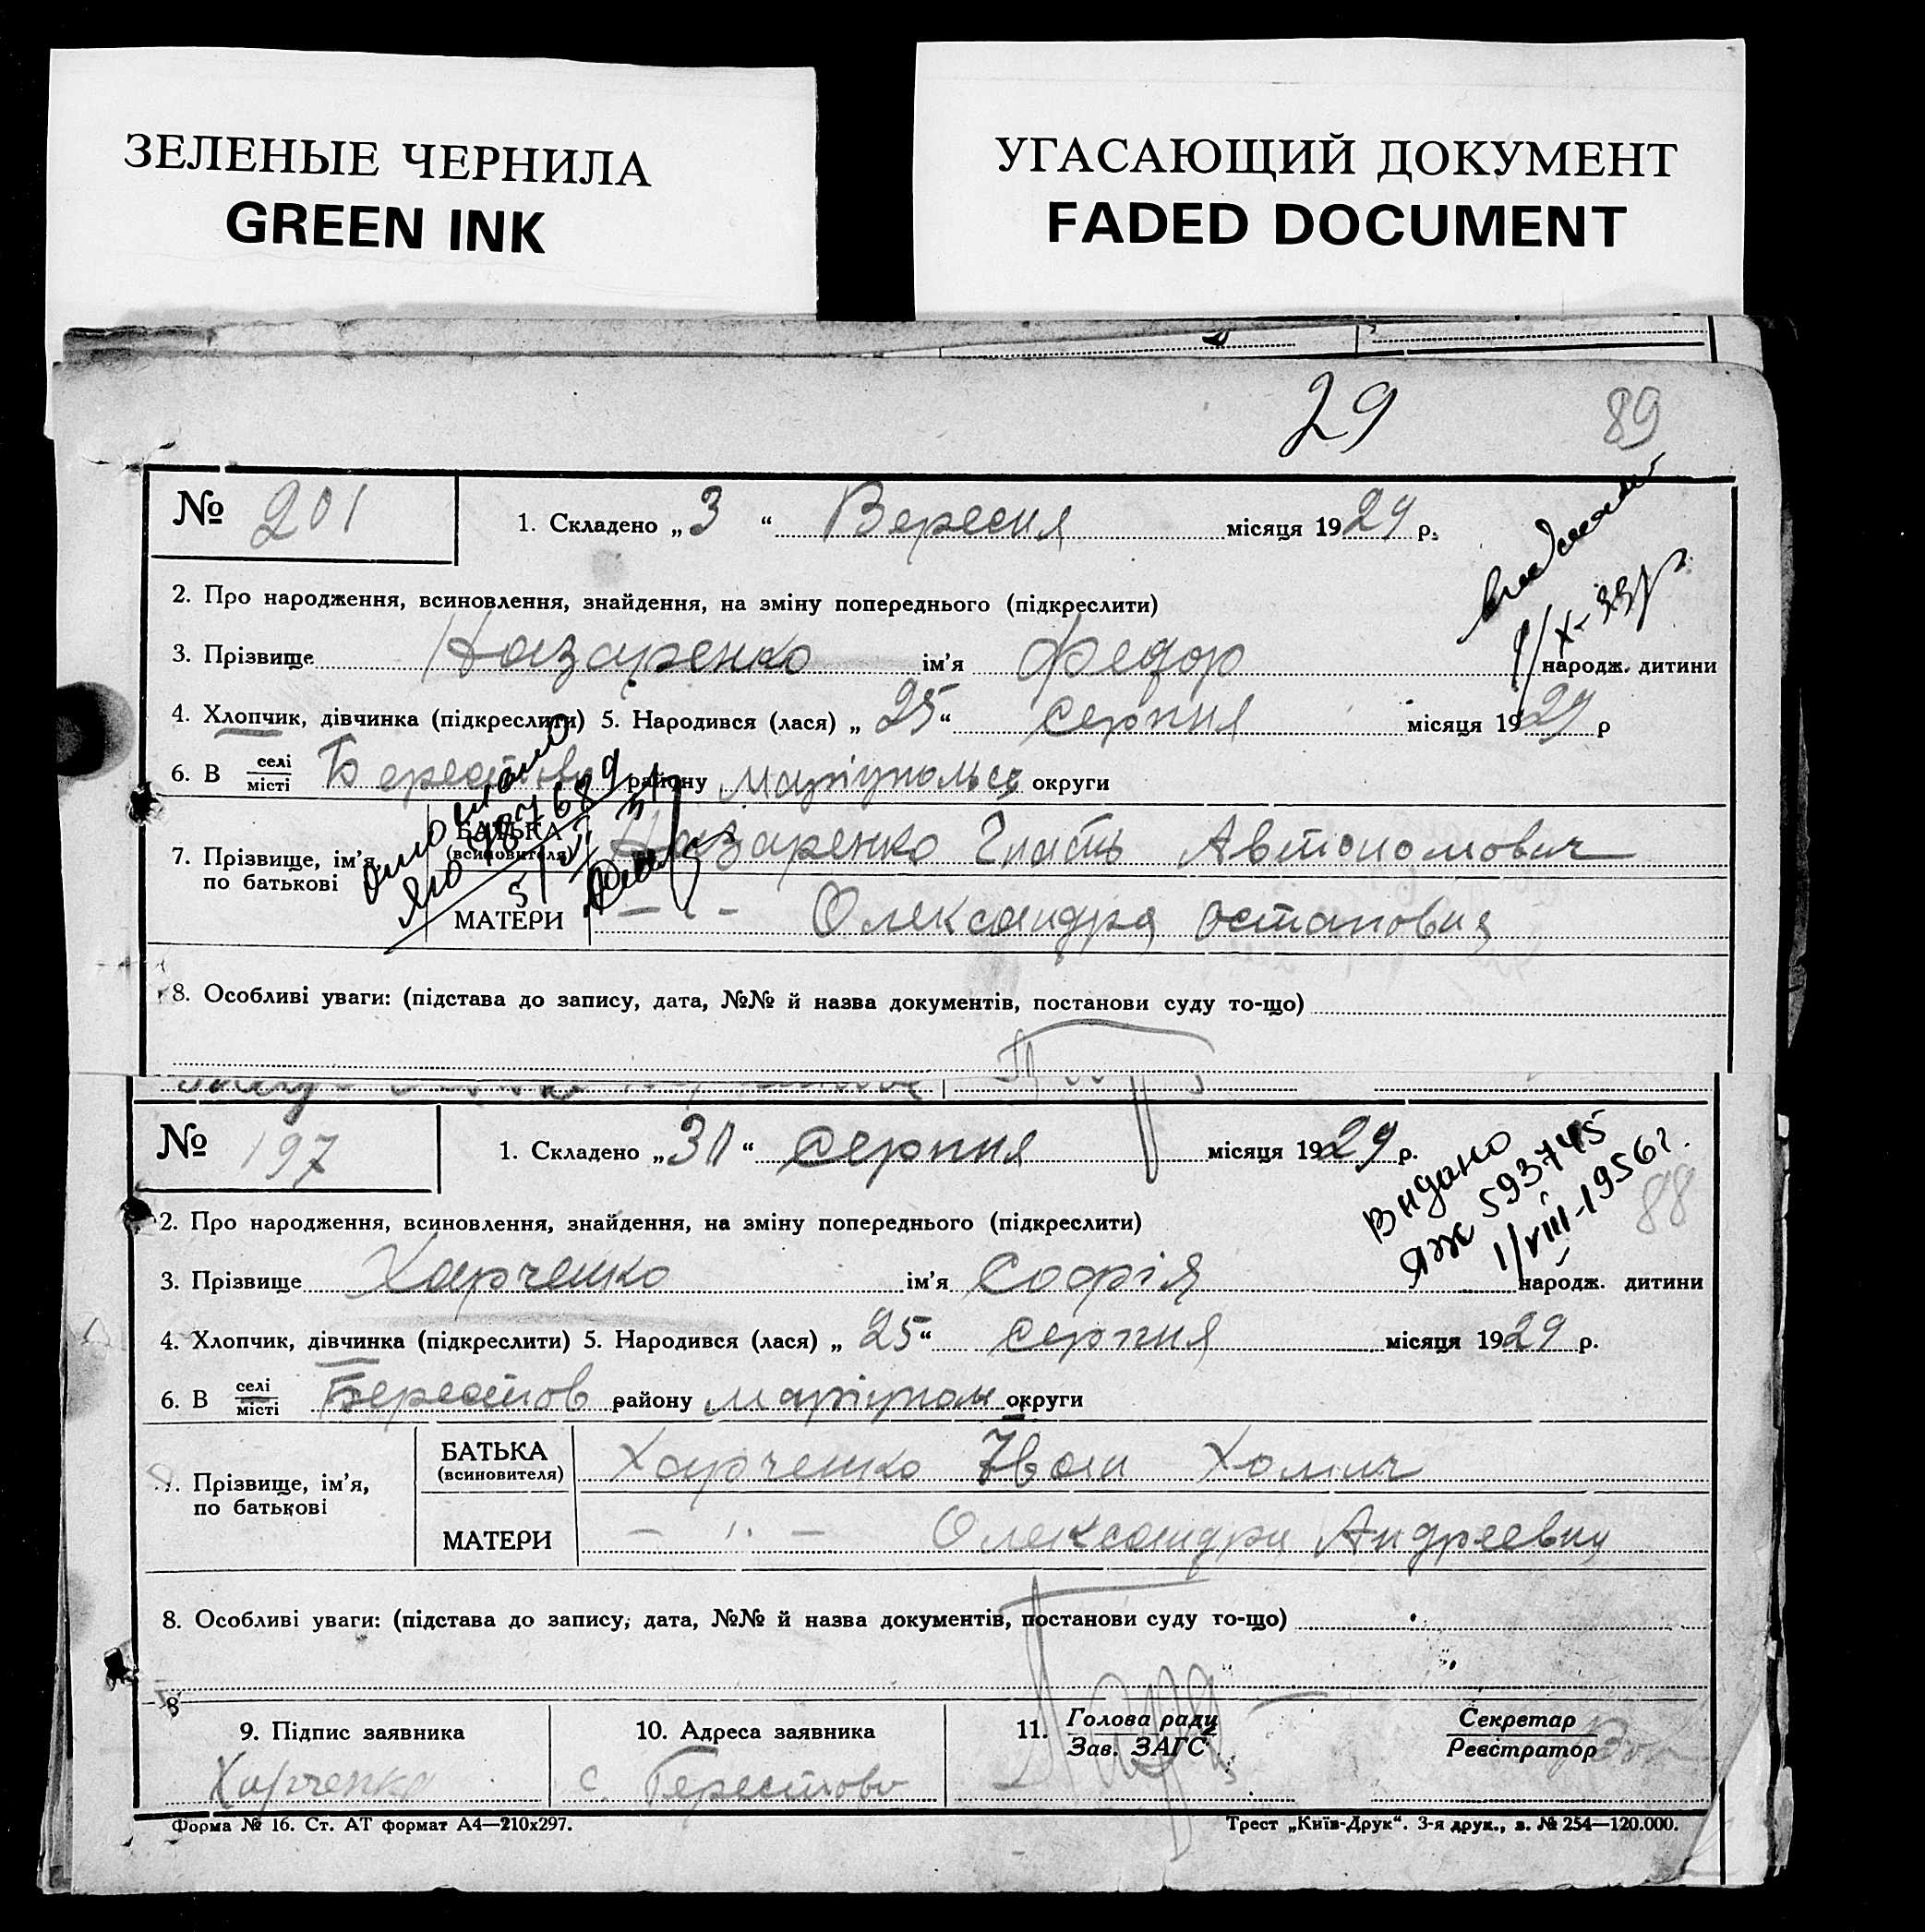 ЗЕЛЕНЫЕ ЧЕРНИЛА
GREEN INK
УГАСАЮЩИЙ ДОКУМЕНТ
FADED DOCUMENT
29
89
№ 201
1. Складено „3“ Вересня місяця 1929 р.
2. Про народження, всиновлення, знайдення, на зміну попереднього (підкреслити)
3. Прізвище Назаренко ім'я Федор народж. дитини
4. Хлопчик, дівчинка (підкреслити) 5. Народився (лася) „25“ серпня місяця 1929 р
6. В селі/місті району округи
7. Прізвище, ім'я, по батькові
БАТЬКА (всиновителя) Назаренко Гнать Автономович
МАТЕРИ — " — Олександра
8. Особливі уваги: (підстава до запису, дата, №№ й назва документів, постанови суду то-що)
№ 197
1. Складено „31“ серпня місяця 1929 р.
Видано
ЯЖ 593745
1/VIII-1956г.
88
2. Про народження, всиновлення, знайдення, на зміну попереднього (підкреслити)
3. Прізвище Харченко ім'я Софія народж. дитини
4. Хлопчик, дівчинка (підкреслити) 5. Народився (лася) „25“ серпня місяця 1929 р.
6. В селі/місті Берестов району Маріупол округи
7. Прізвище, ім'я, по батькові
БАТЬКА (всиновителя) Харченко Іван Хомич
МАТЕРИ — " — Олександра
8. Особливі уваги: (підстава до запису, дата, №№ й назва документів, постанови суду то-що)
9. Підпис заявника
10. Адреса заявника
11. Голова ради
Зав. ЗАГС
Секретар
Реєстратор
Харченко
с. Берестове
Форма № 16. Ст. АТ формат А4—210х297.
Трест „Київ-Друк“. 3-я друк., з. № 254—120.000.